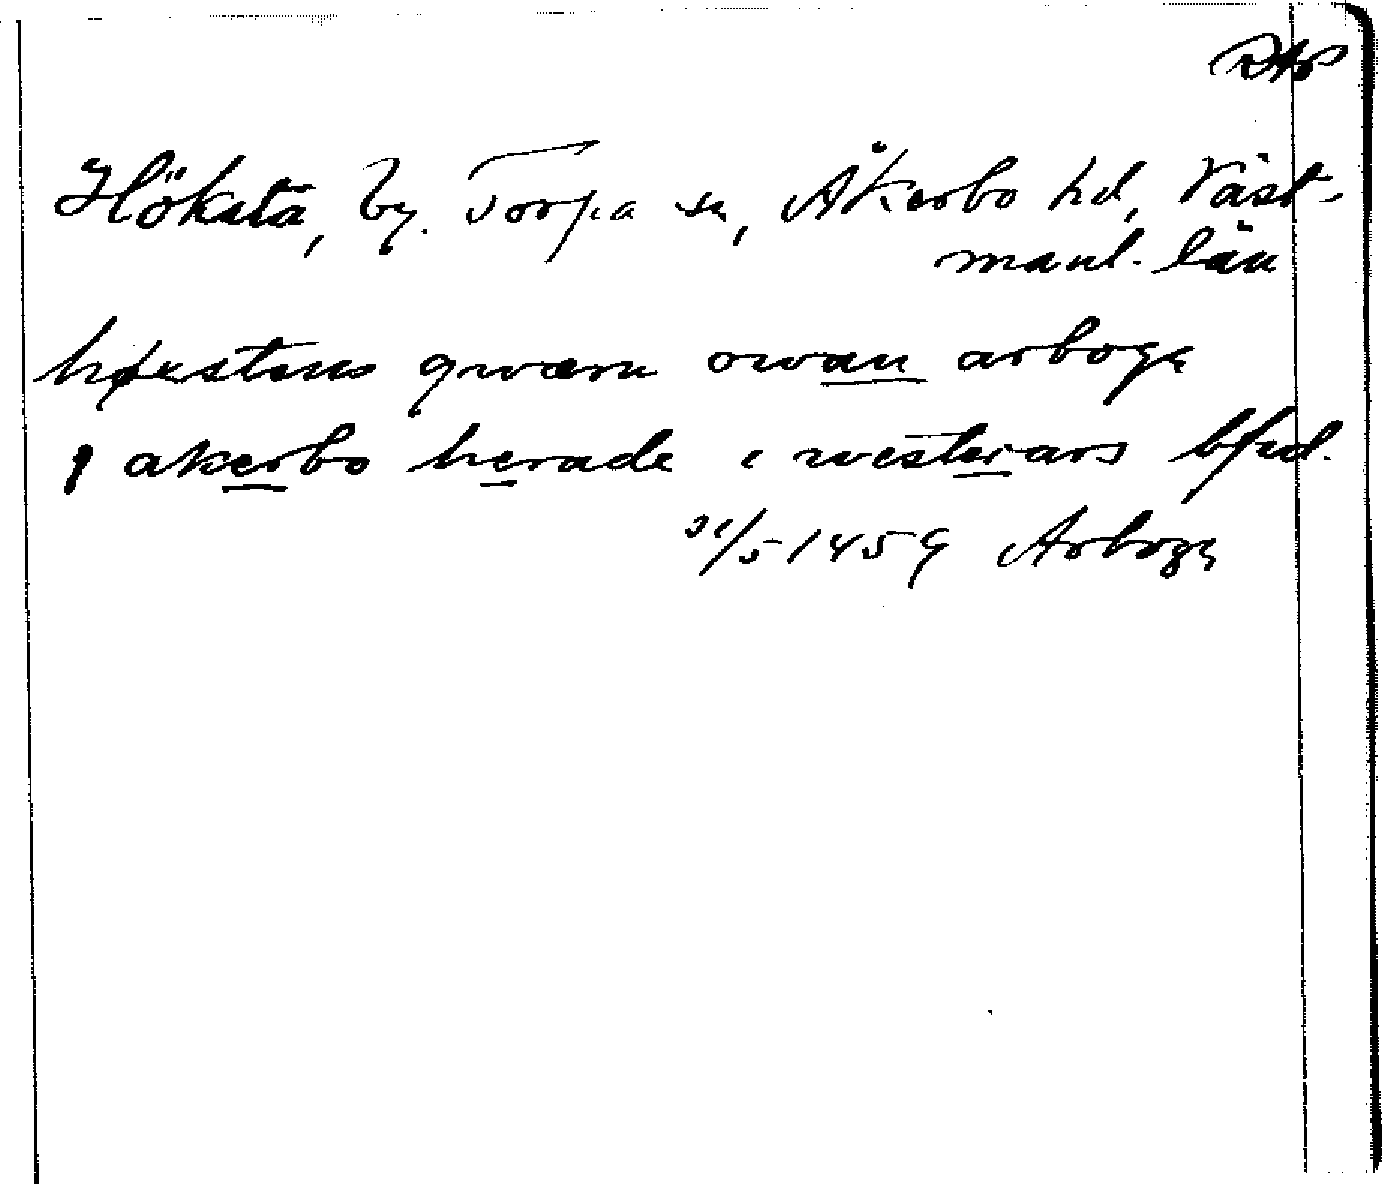 RAp
Höksta, by. Torpa sn, Åkerbo hd, Väst-
manl. län
høxstens qwærn owan arboga
j akerbo herade i westerars bfwd.
31/5 1459 Arboga